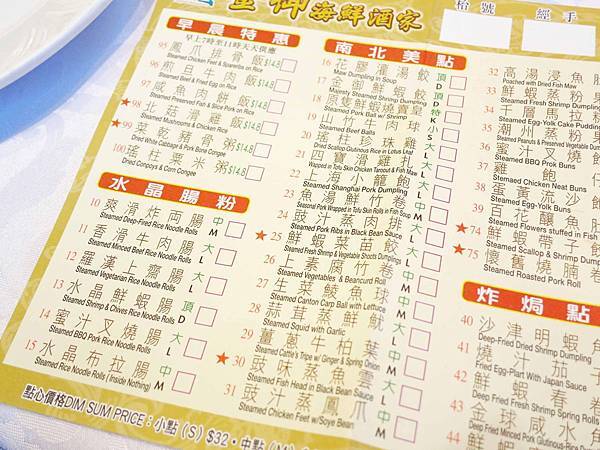 皇御海鮮酒家
枱號 經手
早晨特惠
早上7時至11時天天供應
95 鳳爪排骨飯 $14.8
Steamed Chicken Feet & Spareribs on Rice
96 煎旦牛肉飯 $14.8
Steamed Beef & Fried Egg on Rice
97 咸魚肉餅飯 $14.8
Steamed Preserved Fish & Slice Pork on Rice
★98 北菇滑雞飯 $14.8
Steamed Mushrooms & Chicken Rice
★99 菜乾豬骨粥 $14.8
Dried White Cabbage & Pork Bone Congee
100 瑤柱粟米粥 $14.8
Dried Conpoys & Corn Congee
水晶腸粉
10 爽滑炸両腸 中M
Steamed Deep-Fried Rice Noodle Rolls
11 香滑牛肉腸 大L
Steamed Minced Beef Rice Noodle Rolls
12 羅漢上齋腸 大L
Steamed Vegetarian Rice Noodle Rolls
13 水晶鮮蝦腸 頂D
Steamed Shrimp & Chives Rice Noodle Rolls
14 蜜汁叉燒腸 大L
Steamed BBQ Pork Rice Noodle Rolls
15 水晶布拉腸 中M
Steamed Rice Noodle Rolls (Inside Nothing)
南北美點
16 花膠灌湯餃 頂D
Maw Dumpling in Soup
17 皇御鮮蝦餃 頂D
Majesty Steamed Shrimp Dumpling
18 滾雙鮮蝦燒賣皇 特K
Steamed Pork Ball w/ Shrimp
19 山竹牛肉球 小S
Steamed Beef Balls
20 瑤柱珍珠雞 大L
Dried Scallop Glutinous Rice in Lotus Leaf
21 四寶滑雞扎 大L
Wapped in Tofu Skin Chicken Tarooout & Fish Maw
22 上海小籠飽 大L
Steamed Shanghai Pork Dumpling
23 魚湯鮮竹卷
Seasonal Pork Wrapped in Tofu Skin Rolls in Fish Soup
24 豉汁蒸肉排 中M
Steamed Pork Ribs in Black Bean Sauce
★25 鮮蝦菜苗餃 大L
Steamed Fresh Shrimp & Vegetable Shoots Dumplings
26 上素腐竹卷
Steamed Vegetables & Beancurd Roll
27 生菜鯪魚球 中M
Steamed Canton Carp Ball with Lettuce
28 蒜茸蒸鮮魷 大L
Steamed Squid with Garlic
29 薑蔥牛柏葉 中M
Steamed Cattle's Tripe w/ Ginger & Spring Onion
★30 豉味蒸魚雲 大L
Steamed Fish Head in Black Bean Sauce
31 豉汁蒸鳳爪 中M
Steamed Chicken Feet w/Soye Bean
32 高湯浸魚
Poached with Dried Fish Maw
33 鮮蝦蒸粉
Steamed Fresh Shrimp Dumpling
34 千層馬拉糕
Steamed Egg-Yolk Cake Pudding
35 潮州蒸粉
Steamed Dumpling
36 蜜汁叉燒
Steamed BBQ Prok Buns
37 雞飽仔
Stemaed Chicken Neat Buns
38 蛋黃流沙
Steamed Egg-Yolk Buns
39 百花釀
Steamed Flowers stuffed in Fish
★74 鮮蝦帶子
Steamed Scallop & Shrimp Dumpling
★75 懷舊燒腩卷
Steamed Roasted Pork Roll
炸焗點
40 沙津明蝦角
Deep-Fried Dried Shrimp Dumpling
41 燒汁茄子
Fried Egg-Plant with Japan Sauce
42 鮮蝦春卷
Deep Fried Fresh Shrimp Spring Rolls
43 金球咸水角
Deep Fried Minced Pork Glutinous-Rice
44
點心價格DIM SUM PRICE：小點(S) $32・中點(M)